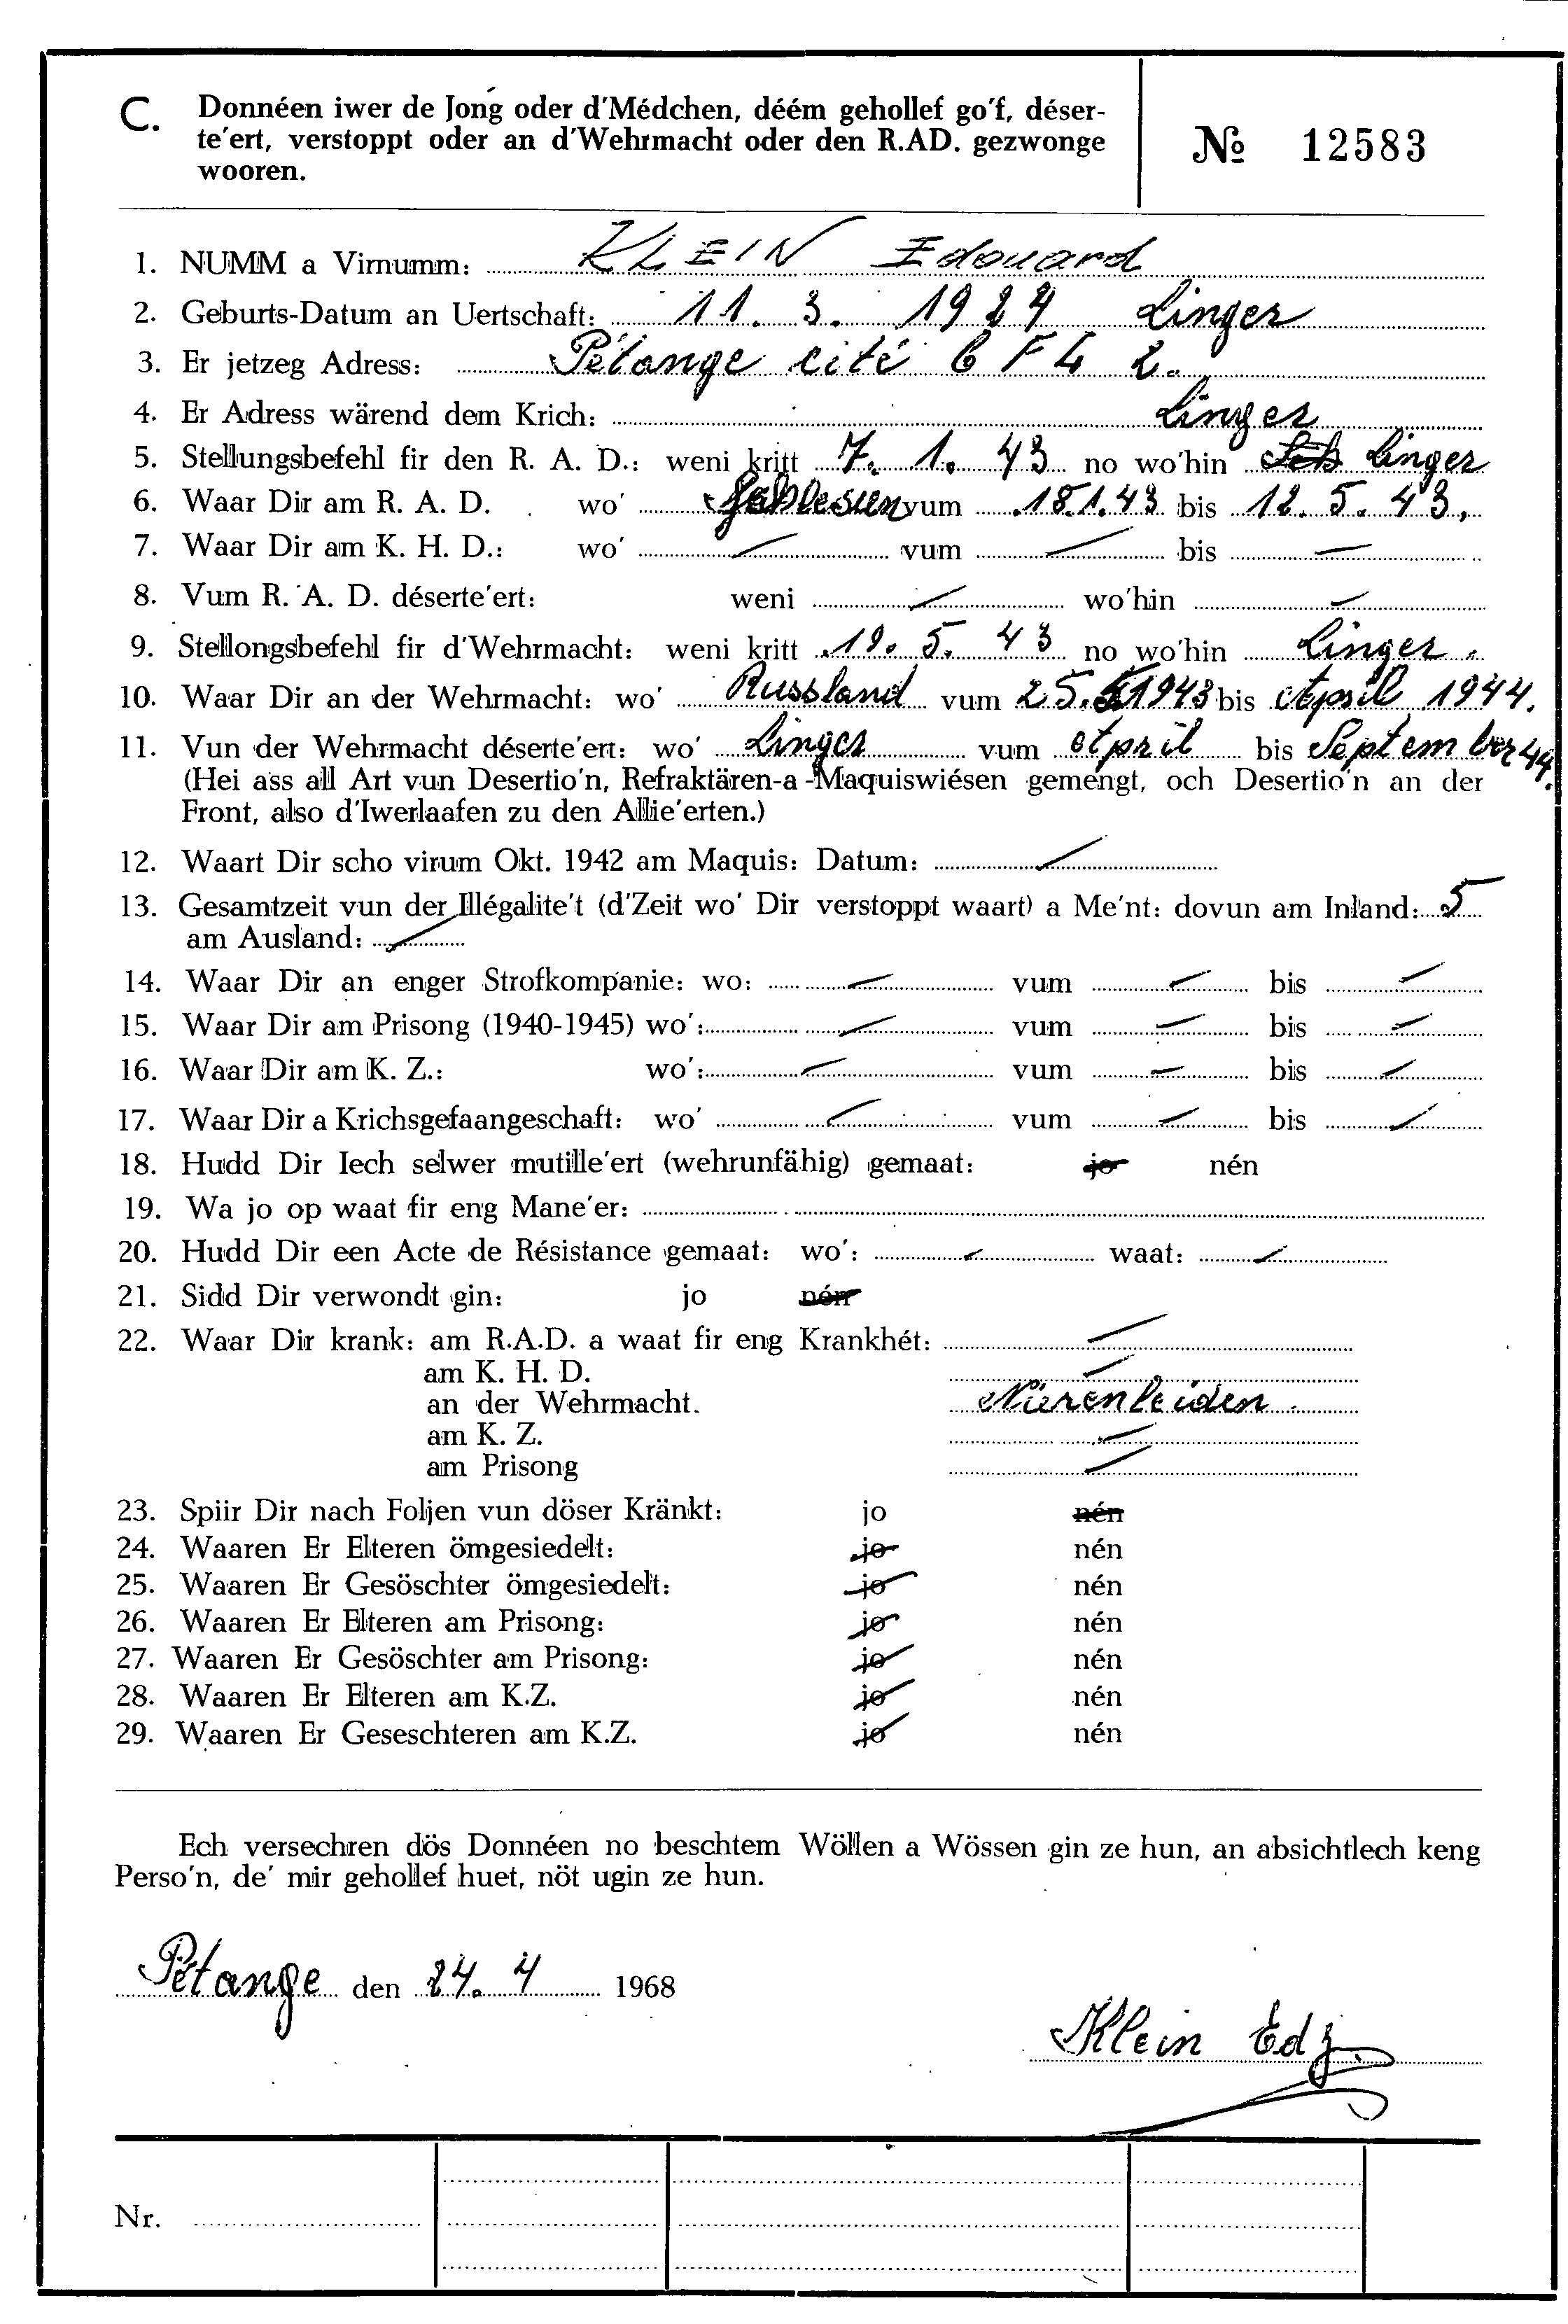 C. Donnéen iwer de Jong oder d'Médchen, déém gehollef go'f, déser-
te'ert, verstoppt oder an d'Wehrmacht oder den R.AD. gezwonge
wooren.
№ 12583
1. NUMM a Virnumm: KLEIN Edouard
2. Geburts-Datum an Uertschaft: 11. 3. 1924 Linger
3. Er jetzeg Adress: Pétange cité C F L 2.
4. Er Adress wärend dem Krich: Linger
5. Stellungsbefehl fir den R. A. D.: weni kritt 7. 1. 43 no wo'hin Linger
6. Waar Dir am R. A. D. wo' Schlesien vum 18.1.43 bis 12. 5. 43.
7. Waar Dir am K. H. D.: wo' — vum — bis —
8. Vum R. A. D. déserte'ert: weni — wo'hin —
9. Stellongsbefehl fir d'Wehrmacht: weni kritt 19. 5. 43 no wo'hin Linger.
10. Waar Dir an der Wehrmacht: wo' Russland vum 25. 5. 1943 bis April 1944.
11. Vun der Wehrmacht déserte'ert: wo' Linger vum April bis September 44.
(Hei ass all Art vun Desertio'n, Refraktären-a-Maquiswiésen gemengt, och Desertio'n an der
Front, also d'Iwerlaafen zu den Allie'erten.)
12. Waart Dir scho virum Okt. 1942 am Maquis: Datum: —
13. Gesamtzeit vun der Illégalite't (d'Zeit wo' Dir verstoppt waart) a Me'nt: dovun am Inland: 5
am Ausland: —
14. Waar Dir an enger Strofkompanie: wo: — vum — bis —
15. Waar Dir am Prisong (1940-1945) wo': — vum — bis —
16. Waar Dir am K. Z.: wo': — vum — bis —
17. Waar Dir a Krichsgefaangeschaft: wo' — vum — bis —
18. Hudd Dir Iech selwer mutille'ert (wehrunfähig) gemaat: jo nén
19. Wa jo op waat fir eng Mane'er:
20. Hudd Dir een Acte de Résistance gemaat: wo': — waat: —
21. Sidd Dir verwondt gin: jo nén
22. Waar Dir krank: am R.A.D. a waat fir eng Krankhét: —
am K. H. D. —
an der Wehrmacht. Nierenleiden
am K. Z. —
am Prisong —
23. Spiir Dir nach Foljen vun döser Kränkt: jo nén
24. Waaren Er Elteren ömgesiedelt: jo nén
25. Waaren Er Gesöschter ömgesiedelt: jo nén
26. Waaren Er Elteren am Prisong: jo nén
27. Waaren Er Gesöschter am Prisong: jo nén
28. Waaren Er Elteren am K.Z. jo nén
29. Waaren Er Geseschteren am K.Z. jo nén
Ech versechren dös Donnéen no beschtem Wöllen a Wössen gin ze hun, an absichtlech keng
Perso'n, de' mir gehollef huet, nöt ugin ze hun.
Pétange den 24. 4 1968
Klein Ed
Nr.